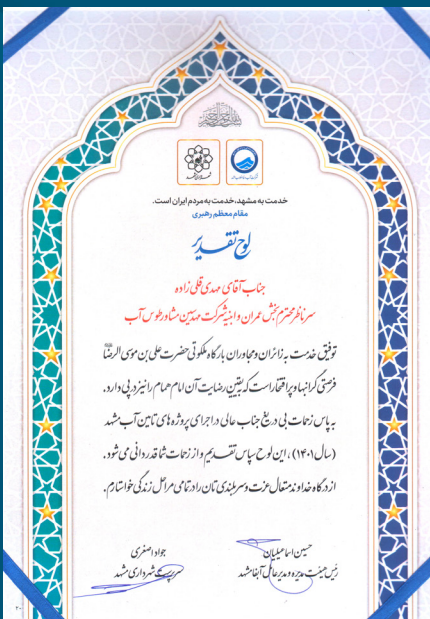 خدمت به مشهد، خدمت به مردم ایران است.
مقام معظم رهبری
لوح تقدیر
جناب آقای مهدی قلی زاده
سرناظر محترم بخش عمران و ابنیه شرکت مهندسین مشاور طوس آب
توفیق خدمت به زائران و مجاوران بارگاه ملکوتی حضرت علی بن موسی الرضا
فرصتی گرانبها و پرافتخار است که به یقین رضایت آن امام همام را نیز در پی دارد.
به پاس زحمات بی دریغ جناب عالی در اجرای پروژه های تامین آب مشهد
(سال ۱۴۰۱)، این لوح سپاس تقدیم و از زحمات شما قدردانی می شود.
از درگاه خداوند متعال عزت و سربلندی تان را در تمامی مراحل زندگی خواستارم.
حسین اسماعیلیان
رئیس هیئت مدیره و مدیرعامل آبفا مشهد
جواد اصغری
سرپرست شهرداری مشهد